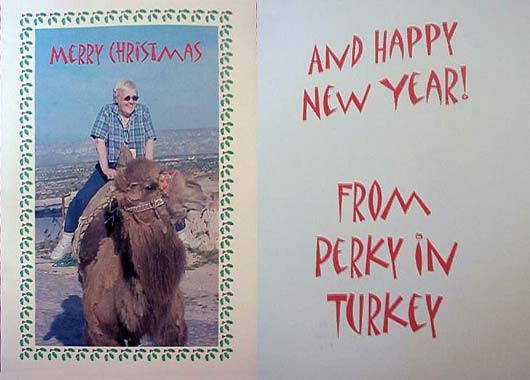 MERRY CHRISTMAS
AND HAPPY
NEW YEAR!
FROM
PERKY IN
TURKEY